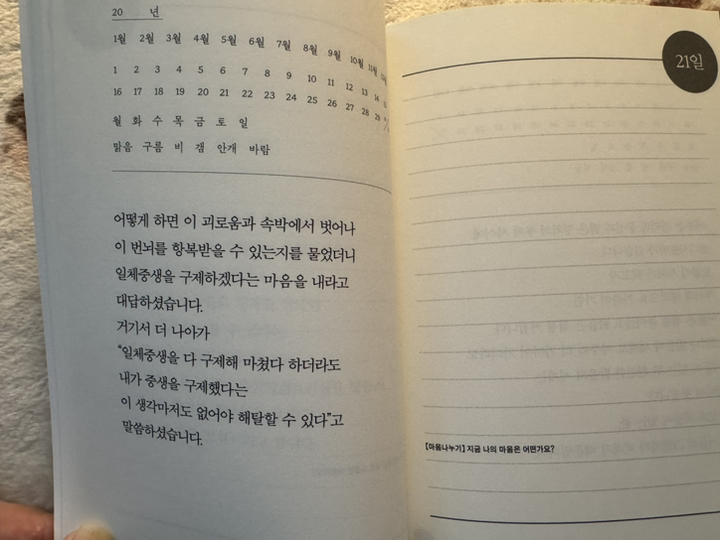 20 년
1월 2월 3월 4월 5월 6월 7월 8월 9월 10월 11월
1 2 3 4 5 6 7 8 9 10 11 12 13 14
16 17 18 19 20 21 22 23 24 25 26 27 28 29
월 화 수 목 금 토 일
맑음 구름 비 갬 안개 바람
어떻게 하면 이 괴로움과 속박에서 벗어나
이 번뇌를 항복받을 수 있는지를 물었더니
일체중생을 구제하겠다는 마음을 내라고
대답하셨습니다.
거기서 더 나아가
“일체중생을 다 구제해 마쳤다 하더라도
내가 중생을 구제했다는
이 생각마저도 없어야 해탈할 수 있다”고
말씀하셨습니다.
21일
[마음나누기] 지금 나의 마음은 어떤가요?